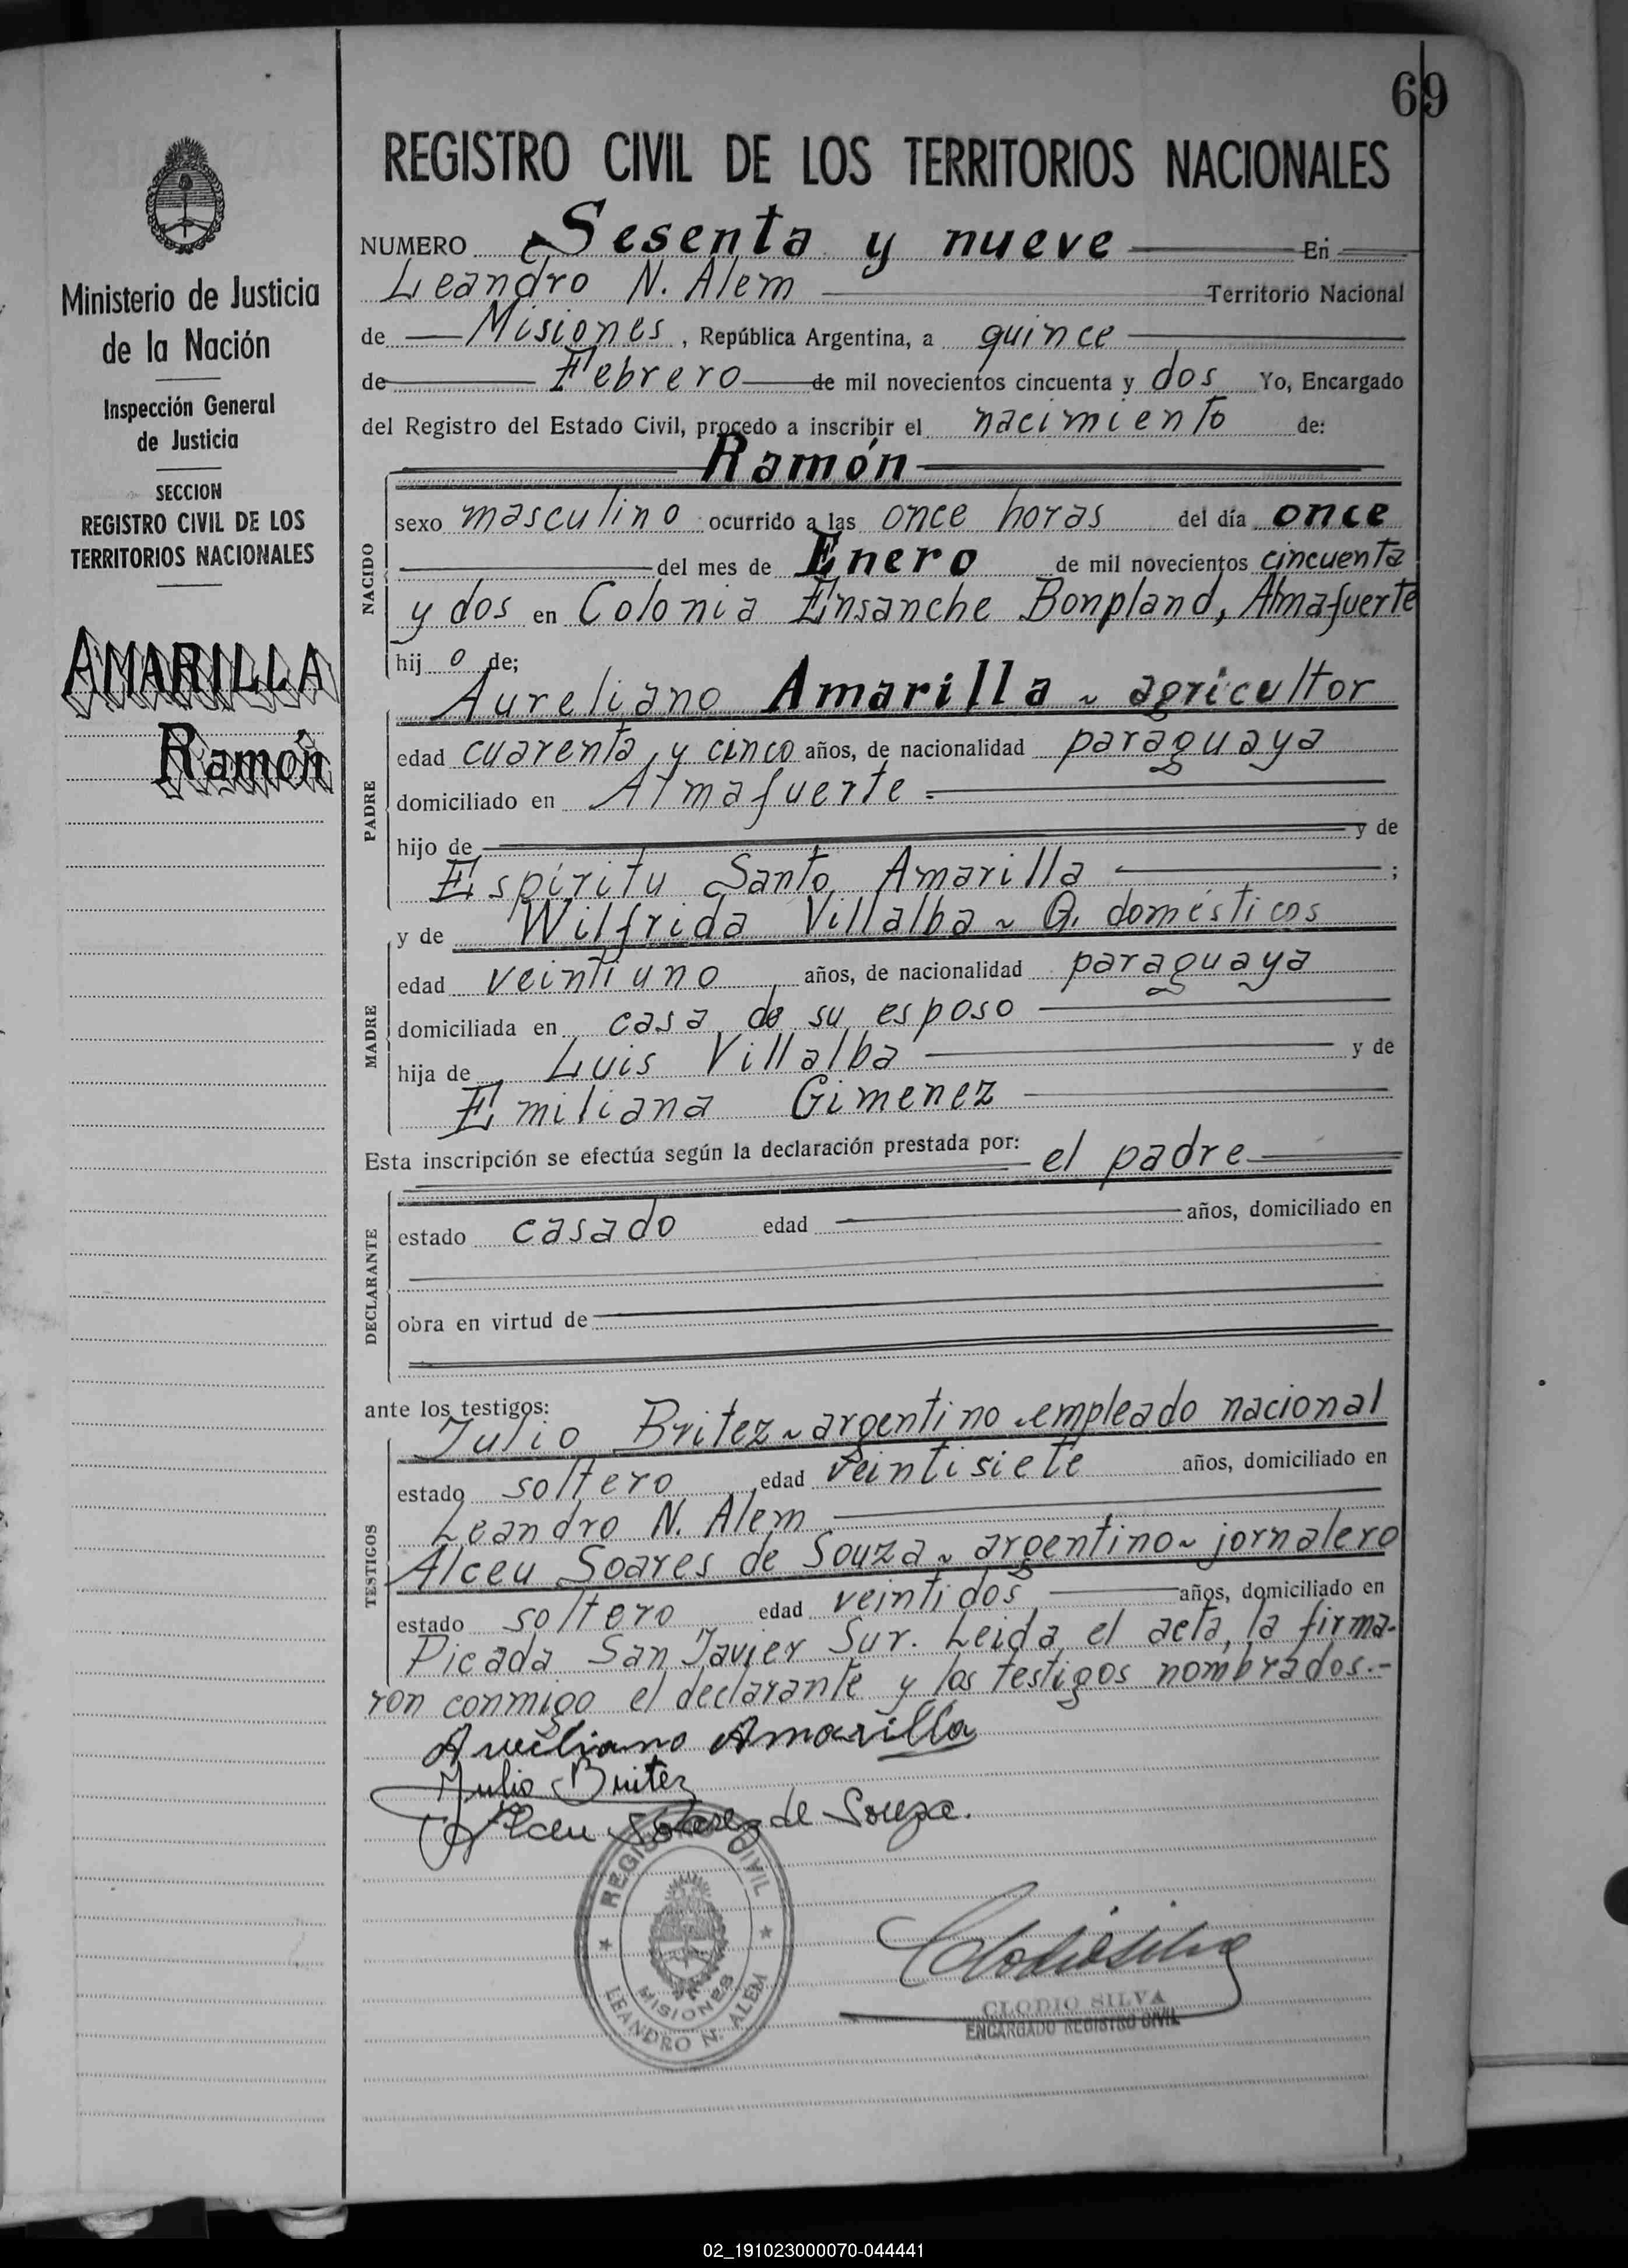 69
REGISTRO CIVIL DE LOS TERRITORIOS NACIONALES
NUMERO Sesenta y nueve En
Leandro N. Alem Territorio Nacional
de Misiones, República Argentina, a quince
de Febrero de mil novecientos cincuenta y dos Yo, Encargado
del Registro del Estado Civil, procedo a inscribir el nacimiento de:
Ramón
Ministerio de Justicia
de la Nación
Inspección General
de Justicia
SECCION
REGISTRO CIVIL DE LOS
TERRITORIOS NACIONALES
AMARILLA
Ramón
NACIDO
sexo masculino ocurrido a las once horas del día once
del mes de Enero de mil novecientos cincuenta
y dos en Colonia Ensanche Bonpland, Almafuerte
hijo de;
PADRE
Aureliano Amarilla ~ agricultor
edad cuarenta y cinco años, de nacionalidad paraguaya
domiciliado en Almafuerte.
hijo de y de
Espíritu Santo Amarilla ;
y de Wilfrida Villalba ~ Q. domésticos
MADRE
edad veintiuno años, de nacionalidad paraguaya
domiciliada en casa de su esposo
hija de Luis Villalba y de
Emiliana Gimenez
Esta inscripción se efectúa según la declaración prestada por: el padre
DECLARANTE
estado casado edad años, domiciliado en
obra en virtud de
ante los testigos:
TESTIGOS
Julio Britez ~ argentino ~ empleado nacional
estado soltero edad veintisiete años, domiciliado en
Leandro N. Alem
Alceu Soares de Souza ~ argentino ~ jornalero
estado soltero edad veintidos años, domiciliado en
Picada San Javier Sur. Leida el acta, la firma-
ron conmigo el declarante y los testigos nombrados.-
Aureliano Amarilla
Julio Britez
Alceu Soares de Souza.
REGISTRO CIVIL
MISIONES
LEANDRO N. ALEM
Clodio Silva
CLODIO SILVA
ENCARGADO REGISTRO CIVIL
02_191023000070-044441